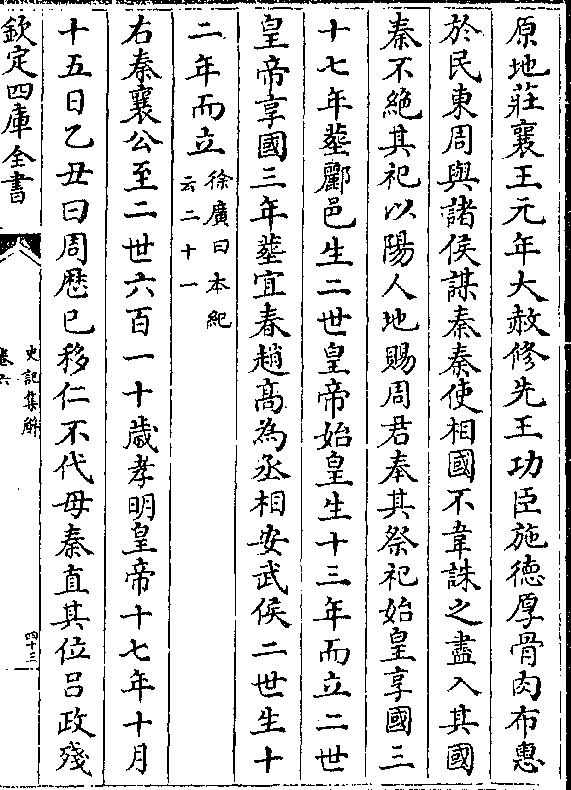 原地莊襄王元年大赦修先王功臣施德厚骨肉布惠
於民東周與諸侯謀秦秦使相國不韋誅之盡入其國
秦不絶其祀以陽人地賜周君奉其祭祀始皇享國三
十七年塟酈邑生二世皇帝始皇生十三年而立二世
皇帝享國三年塟宜春趙髙為丞相安武侯二世生十
二年而立徐廣曰本紀
云二十一
右秦襄公至二世六百一十歳孝明皇帝十七年十月
十五日乙丑曰周歴已移仁不代母秦直其位吕政殘
欽定四庫全書
史記集解
卷六
四十三